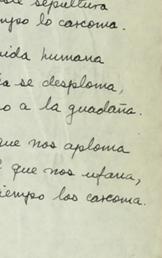 sepultura
mpo lo carcoma.
vida humana
se desploma,
o a la guadaña.
que nos aploma
que nos ufana,
tiempo los carcoma.